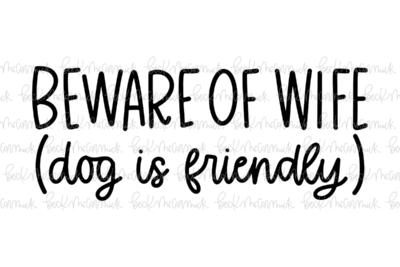 BEWARE OF WIFE
(dog is friendly)